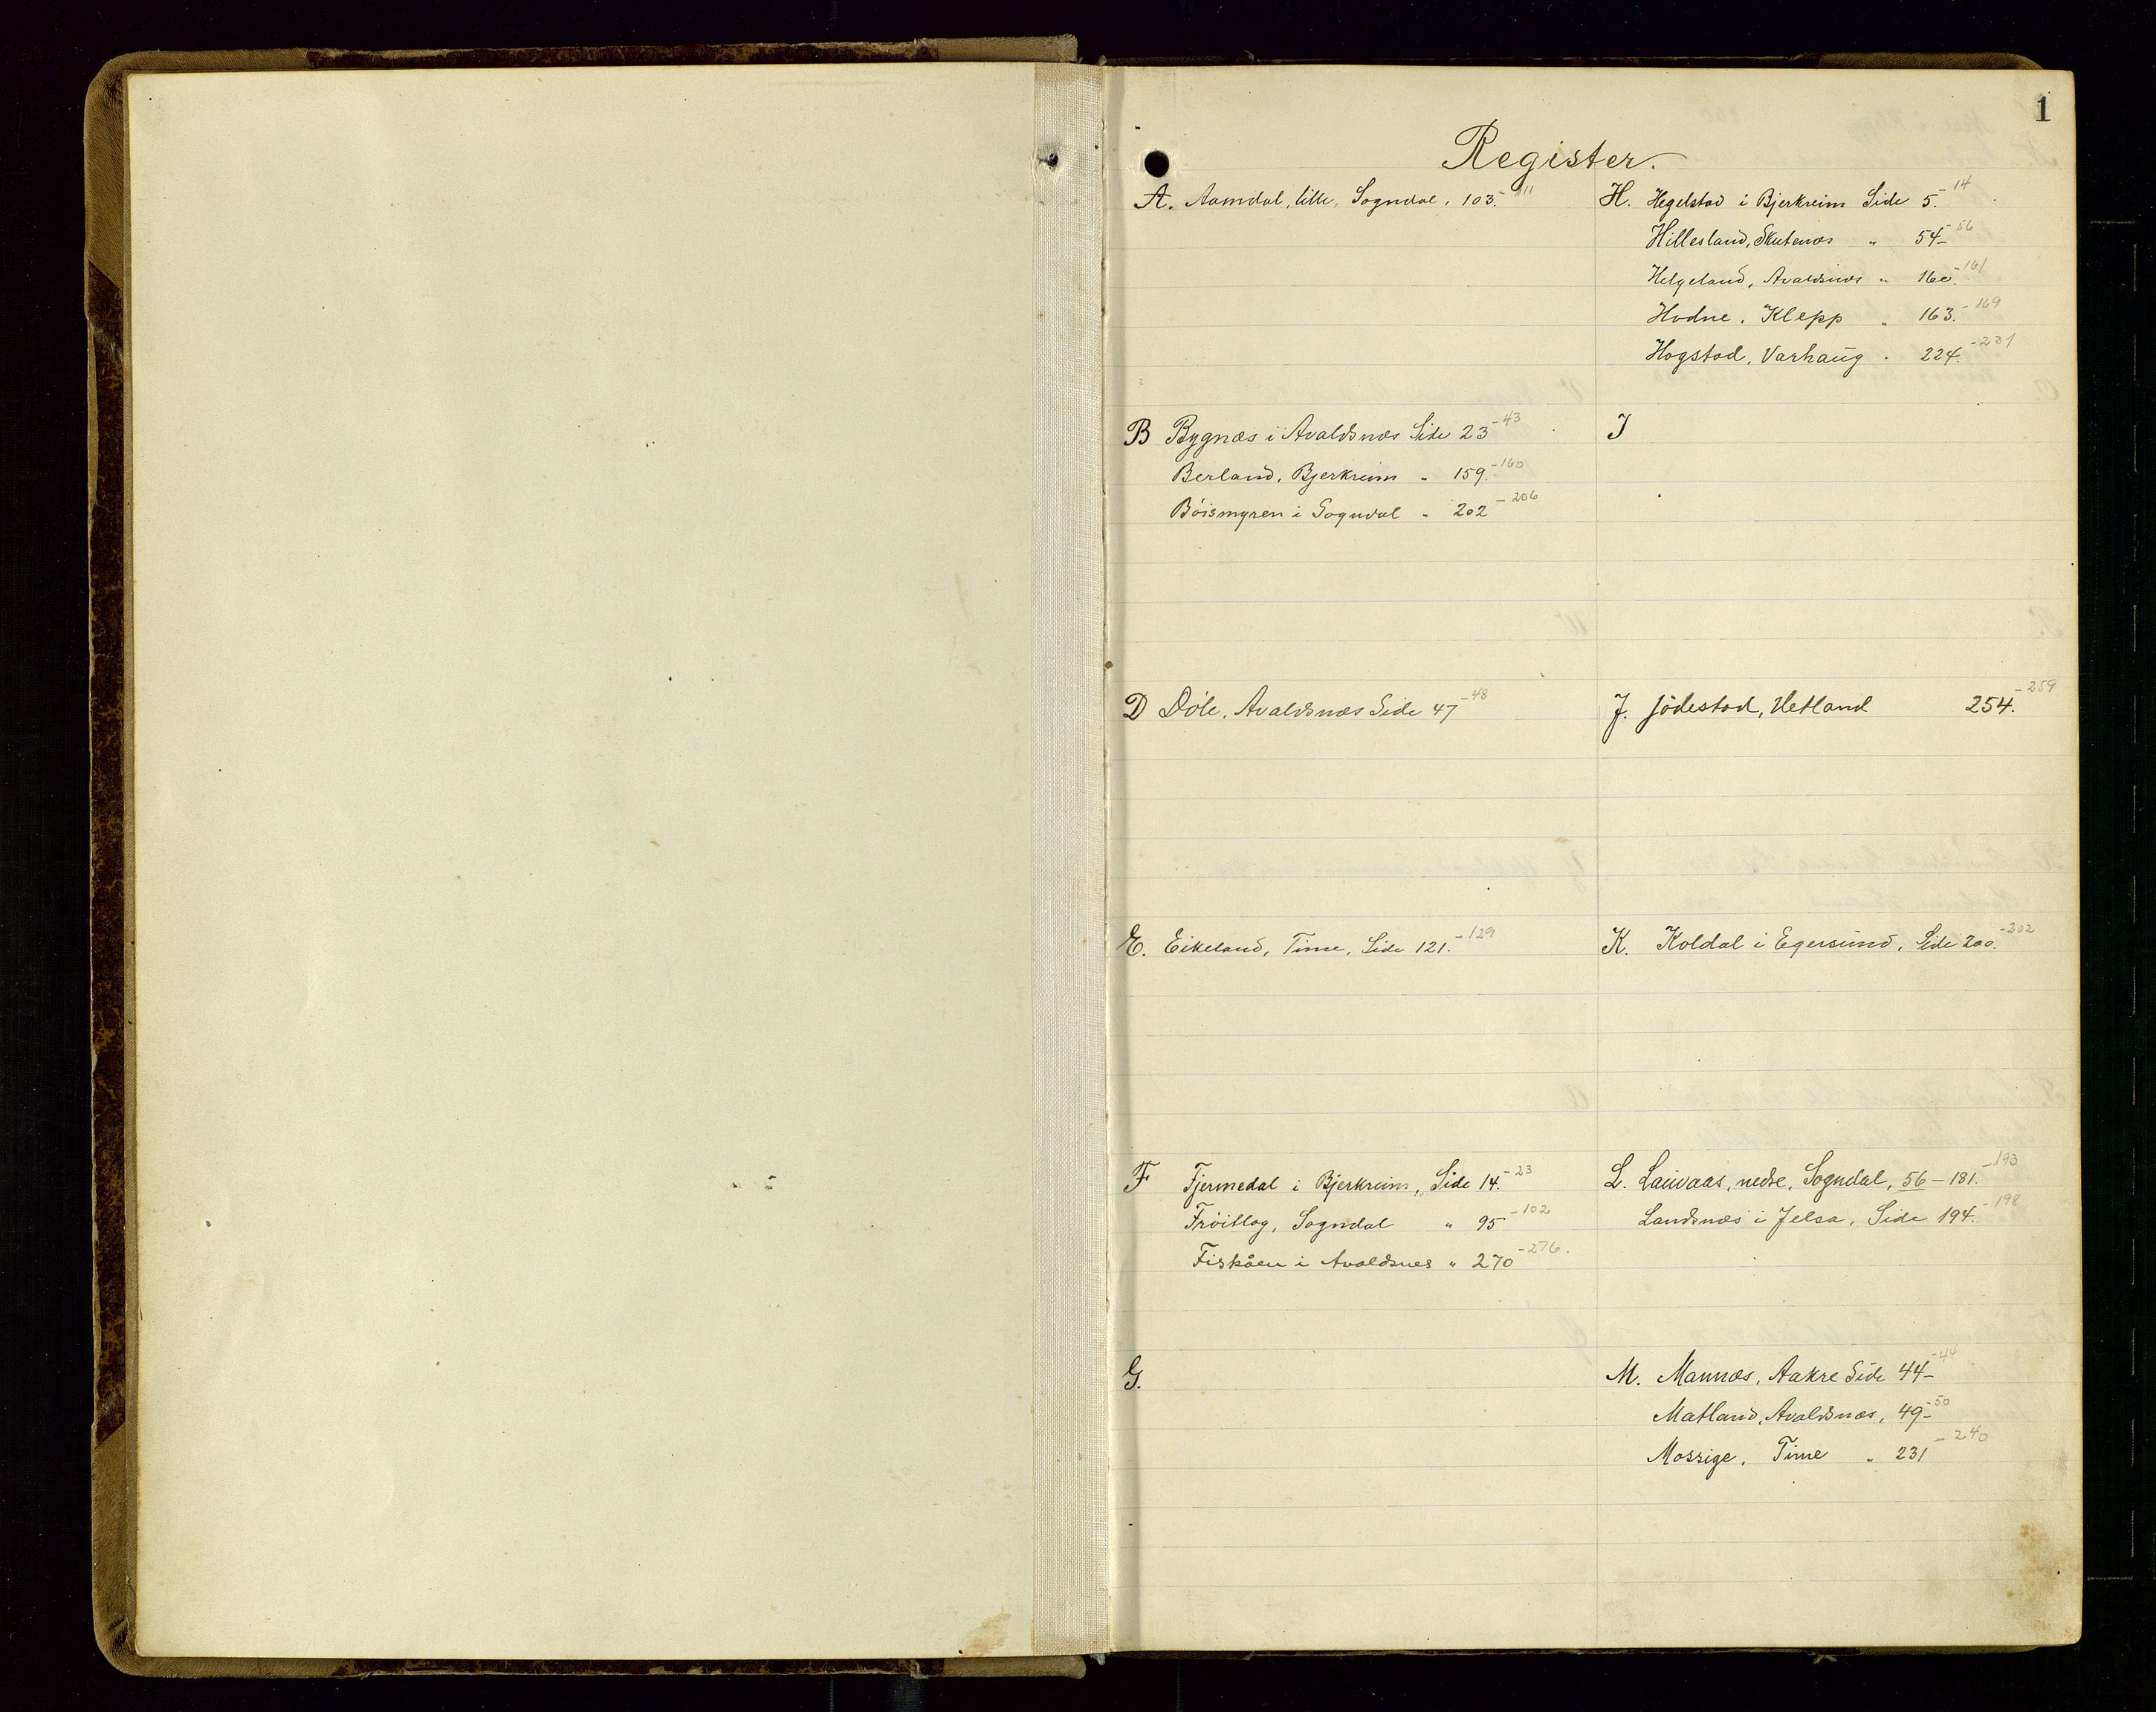 1
Register.
A. Aamdal, lille, Sogndal, 103.-111
B Bygnæs i Avaldsnæs Side 23-43
Berland, Bjerkreim " 159.-160
Böismyren i Sogndal " 202-206
D Döle, Avaldsnæs Side 47-48
E. Eikeland, Time, Side 121.-129
F Fjermedal i Bjerkreim, Side 14.-23
Fröitlog, Sogndal " 95-102
Fiskåen i Avaldsnes " 270-276.
G.
H. Hegelstad i Bjerkreim Side 5.-14
Hillesland, Skutenæs " 54-56
Helgeland, Avaldsnæs " 160.-161
Hodne, Klepp " 163.-169
Hogstad, Varhaug " 224.-231
I
J. Jödestad, Hetland 254.-259
K. Koldal i Egersund, Side 200.-202
L. Lauvaas, nedre, Sogndal, 56-181.-193
Landsnæs i Jelsa, Side 194.-198
M. Mannæs, Aakre Side 44-44
Matland, Avaldsnæs, 49-50
Mossige, Time " 231-240